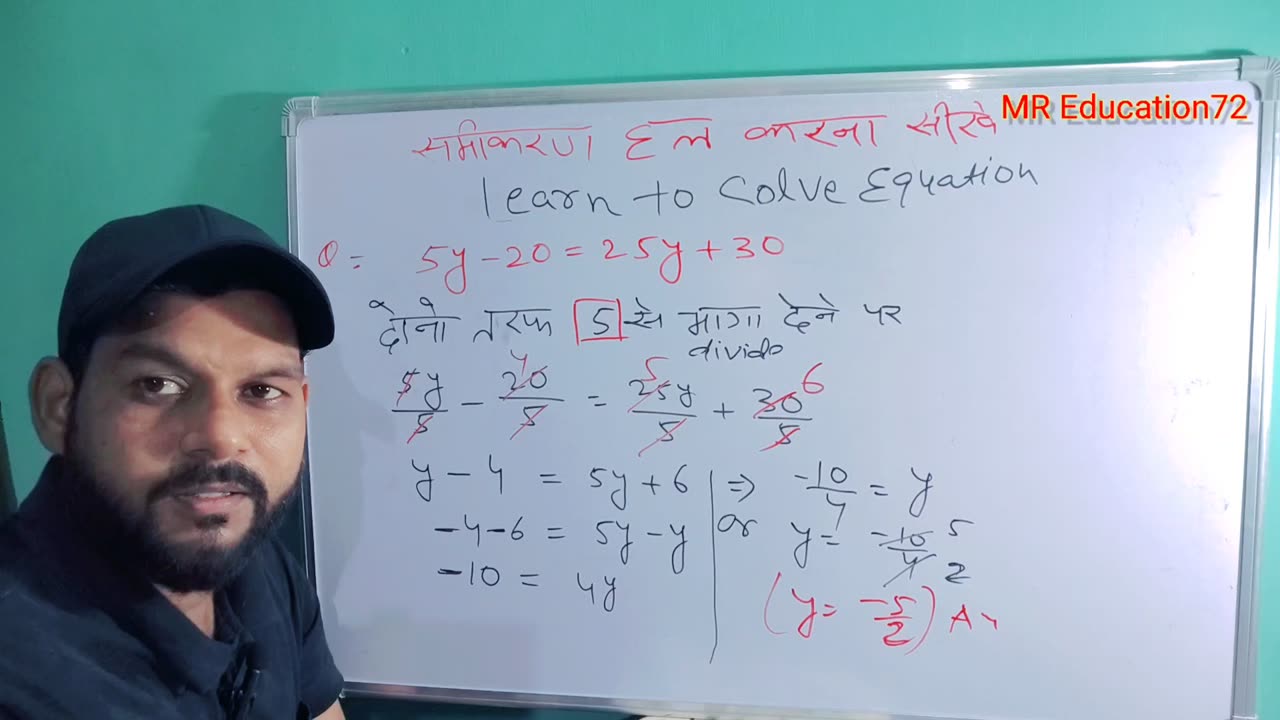 MR Education72
समीकरण हल करना सीखे
Learn to Solve Equation
Q = 5y - 20 = 25y + 30
दोनो तरफ 5 से भागा देने पर
divide
5y/5 - 20/5 = 25y/5 + 30/5
4 5 6
y - 4 = 5y + 6
-4 - 6 = 5y - y
-10 = 4y
⇒ -10/4 = y
or y = -10/4 5 2
(y = -5/2) A